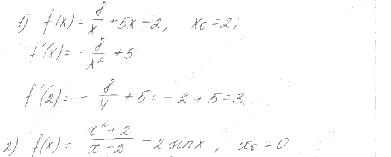 1) f(x) = 8/x + 5x - 2, x₀ = 2;
f'(x) = - 8/x² + 5
f'(2) = - 8/4 + 5 = - 2 + 5 = 3.
2) f(x) = (x² + 2)/(x - 2) - 2 sin x, x₀ = 0